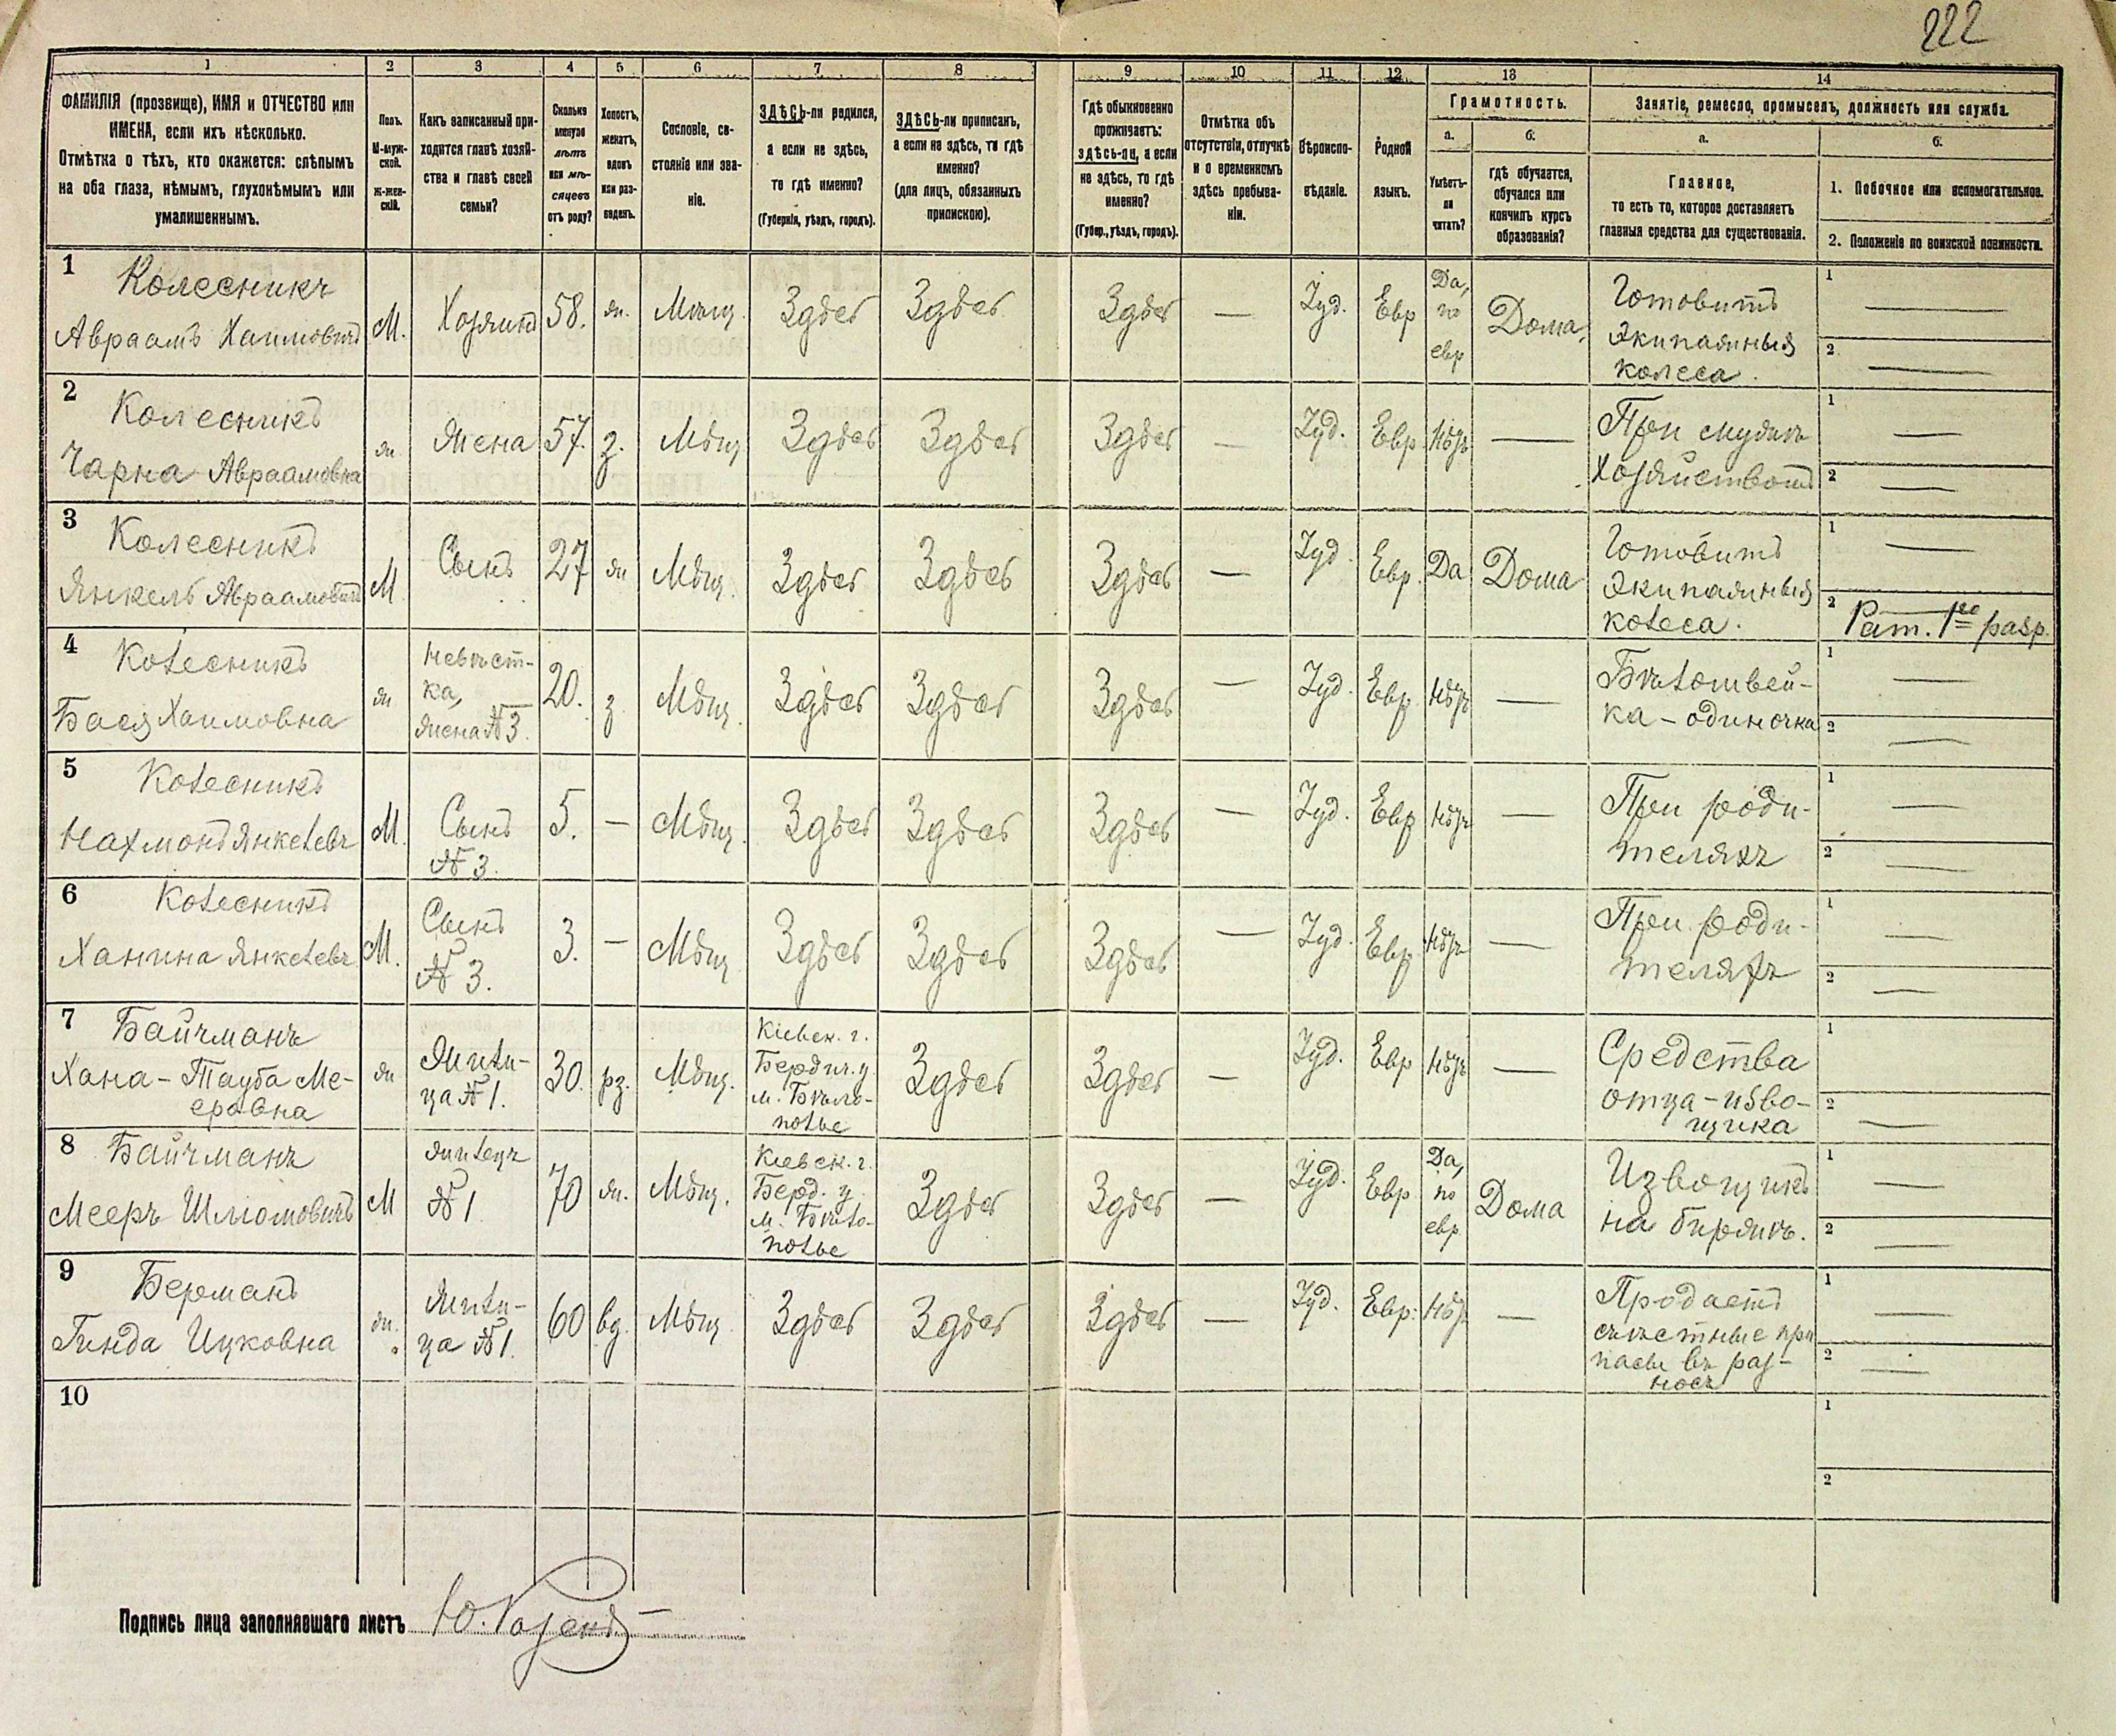 222
1 2 3 4 5 6 7 8 9 10 11 12 13 14
ФАМИЛІЯ (прозвище), ИМЯ и ОТЧЕСТВО или
ИМЕНА, если ихъ нѣсколько.
Отмѣтка о тѣхъ, кто окажется: слѣпымъ
на оба глаза, нѣмымъ, глухонѣмымъ или
умалишеннымъ.
Полъ.
М-муж-
ской.
ж-жен-
скій.
Какъ записанный при-
ходится главѣ хозяй-
ства и главѣ своей
семьи?
Сколько
минуло
лѣтъ
или мѣ-
сяцевъ
отъ роду?
Холостъ,
женатъ,
вдовъ
или раз-
веденъ.
Сословіе, со-
стояніе или зва-
ніе.
ЗДѢСЬ-ли родился,
а если не здѣсь,
то гдѣ именно?
(Губернія, уѣздъ, городъ).
ЗДѢСЬ-ли приписанъ,
а если не здѣсь, то гдѣ
именно?
(для лицъ, обязанныхъ
припискою).
Гдѣ обыкновенно
проживаетъ:
здѣсь-ли, а если
не здѣсь, то гдѣ
именно?
(Губер., уѣздъ, городъ).
Отмѣтка объ
отсутствіи, отлучкѣ
и о временномъ
здѣсь пребыва-
ніи.
Вѣроиспо-
вѣданіе.
Родной
языкъ.
Грамотность.
а.
Умѣетъ-
ли
читать?
б.
гдѣ обучается,
обучался или
кончилъ курсъ
образованія?
Занятіе, ремесло, промыселъ, должность или служба.
а.
Главное,
то есть то, которое доставляетъ
главныя средства для существованія.
б.
1. Побочное или вспомогательное.
2. Положеніе по воинской повинности.
1
Колесникъ
Авраамъ Хаимовичъ
М.
Хозяинъ
58.
ж.
Мѣщ.
Здѣсь
Здѣсь
Здѣсь
—
Іуд.
Евр
Да,
по
евр
Дома.
Готовитъ
экипажныя
колеса.
1 —
2 —
2
Колесникъ
Чарна Авраамовна
ж
Жена
57.
з.
Мѣщ
Здѣсь
Здѣсь
Здѣсь
—
Іуд.
Евр
Нѣтъ
—
При мужѣ
Хозяйствомъ
1 —
2 —
3
Колесникъ
Янкель Авраамовичъ
М
Сынъ
27
ж
Мѣщ.
Здѣсь
Здѣсь
Здѣсь
—
Іуд.
Евр.
Да
Дома
Готовитъ
экипажныя
колеса.
1 —
2 Рат. 1го разр.
4
Колесникъ
Бася Хаимовна
ж
Невѣст-
ка,
жена №3.
20.
з
Мѣщ.
Здѣсь
Здѣсь
Здѣсь
—
Іуд.
Евр.
Нѣтъ
—
Бѣлошвей-
ка - одиночка
1 —
2 —
5
Колесникъ
Нахмонъ Янкелевъ
М.
Сынъ
№ 3.
5.
—
Мѣщ.
Здѣсь
Здѣсь
Здѣсь
—
Іуд.
Евр
Нѣтъ
—
При роди-
теляхъ
1 —
2 —
6
Колесникъ
Ханина Янкелевъ
М.
Сынъ
№ 3.
3.
—
Мѣщ
Здѣсь
Здѣсь
Здѣсь
—
Іуд.
Евр.
Нѣтъ
—
При роди-
теляхъ
1 —
2 —
7
Байчманъ
Хана - Тауба Ме-
еровна
ж
Жили-
ца № 1.
30.
рз.
Мѣщ.
Кіевск. г.
Бердич. у
м. Бѣло-
полье
Здѣсь
Здѣсь
—
Іуд.
Евр
Нѣтъ
—
Средства
отца - изво-
щика
1 —
2 —
8
Байчманъ
Мееръ Шлюмовичъ
М
жилецъ
№ 1
70
ж.
Мѣщ.
Кіевск. г.
Берд. у.
м. Бѣло-
полье
Здѣсь
Здѣсь
—
Іуд.
Евр
Да,
по
евр
Дома
Извощикъ
на биржѣ.
1 —
2 —
9
Берманъ
Гинда Ицковна
ж.
Жили-
ца №1.
60
вд.
Мѣщ.
Здѣсь
Здѣсь
Здѣсь
—
Іуд.
Евр.
Нѣтъ
—
Продаетъ
съѣстные при
пасы въ раз-
носъ
1 —
2 —
10
1
2
Подпись лица заполнявшаго листъ